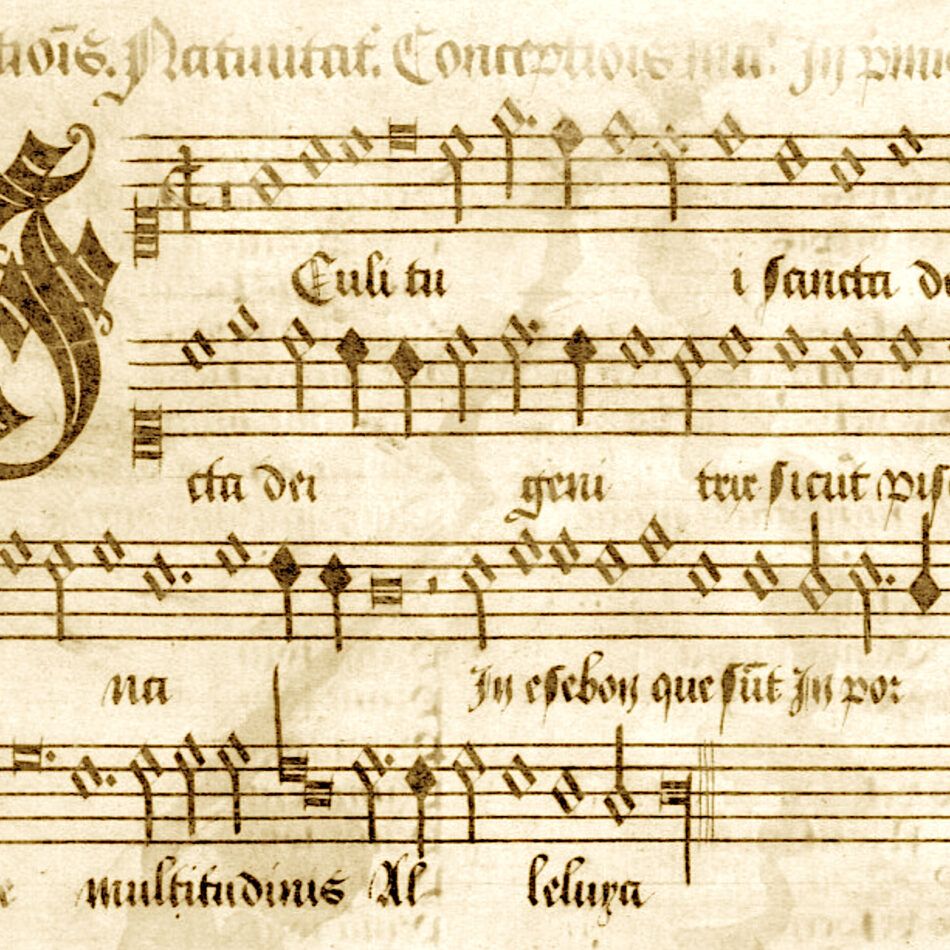 tioīs. Natiuitat. Conceptiois
Culi tu i sancta de
cta dei geni trix sicut pis
na In esebon que sūt In por
e multitudinis Al leluya